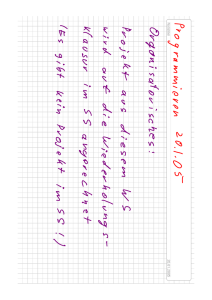 Programmieren 20.1.05
Organisatorisches:
Projekt aus diesem WS
wird auf die Wiederholungs-
klausur im SS angerechnet
(Es gibt kein Projekt im SS!)